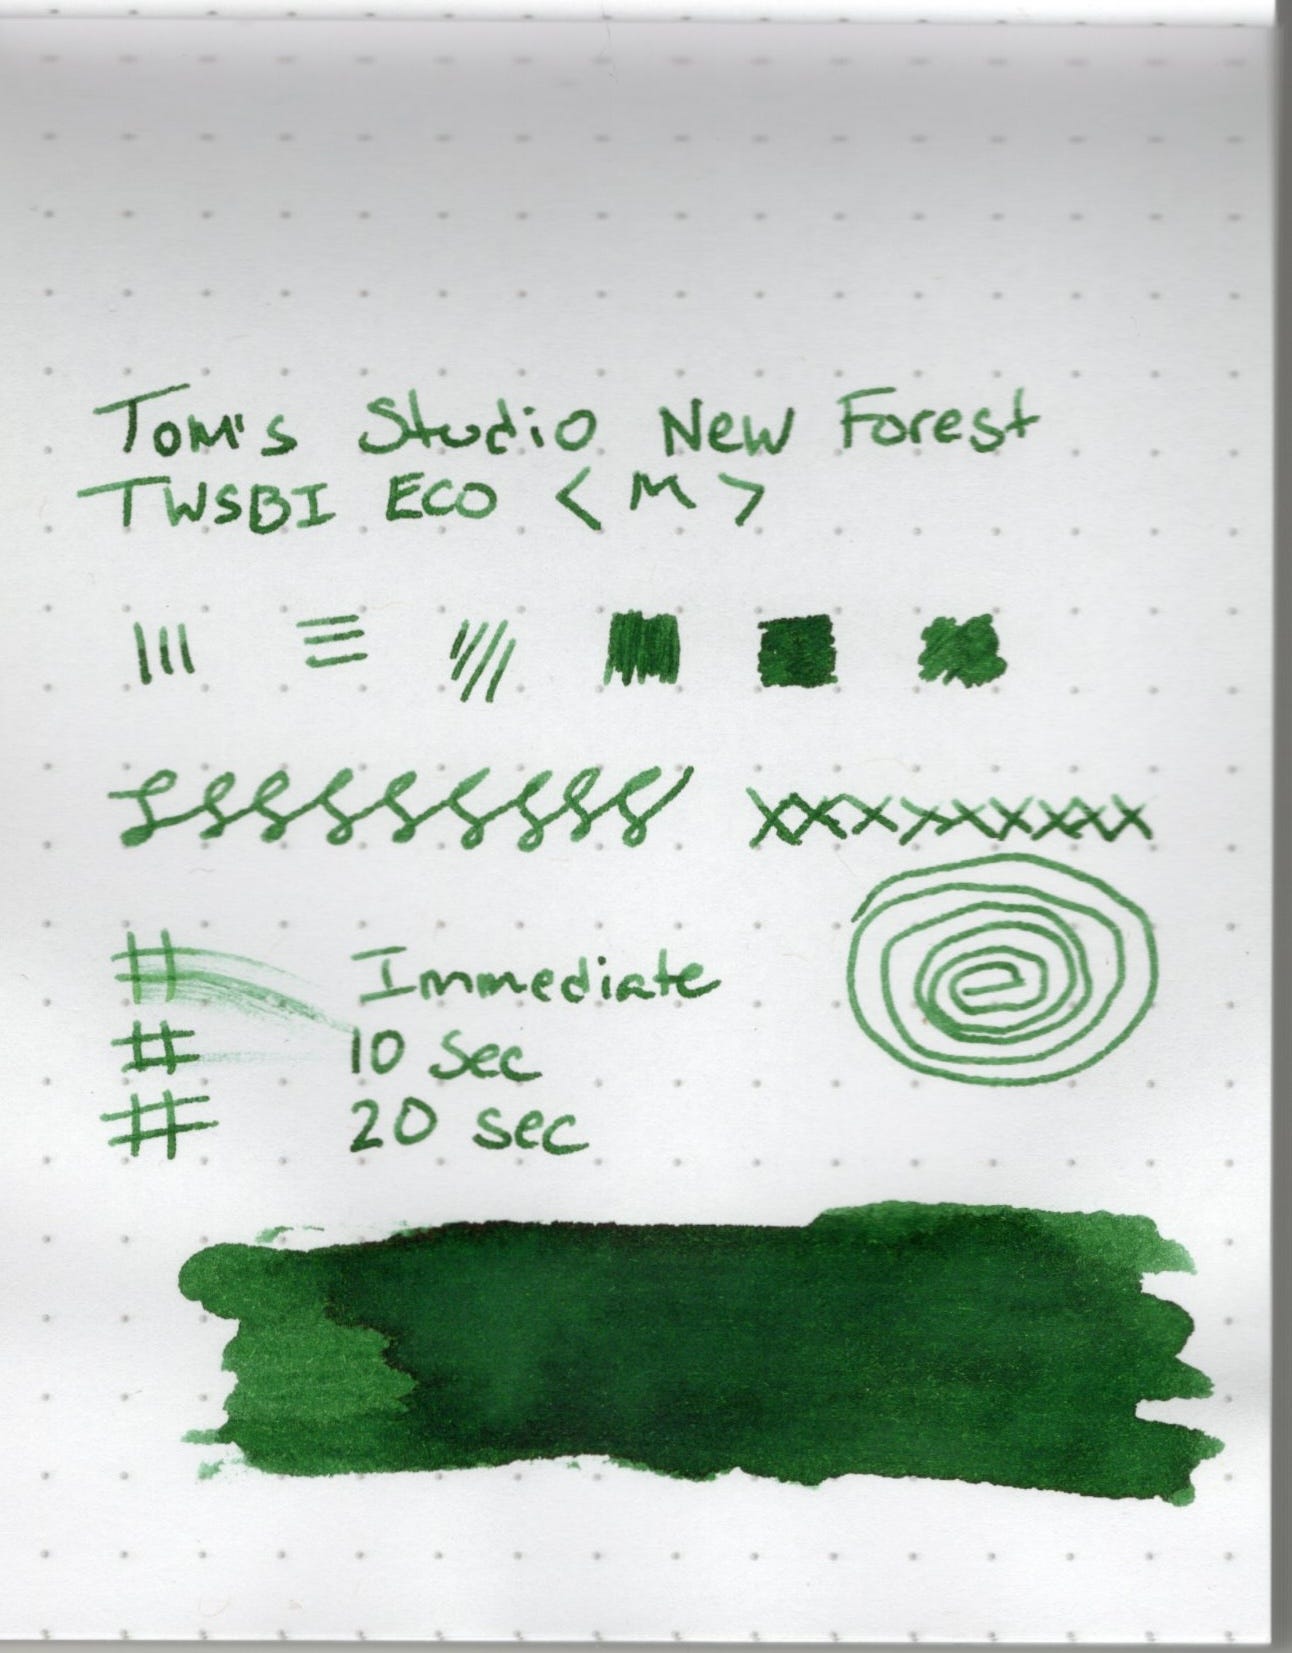 Tom's Studio New Forest
TWSBI ECO < M >
Immediate
10 Sec
20 sec